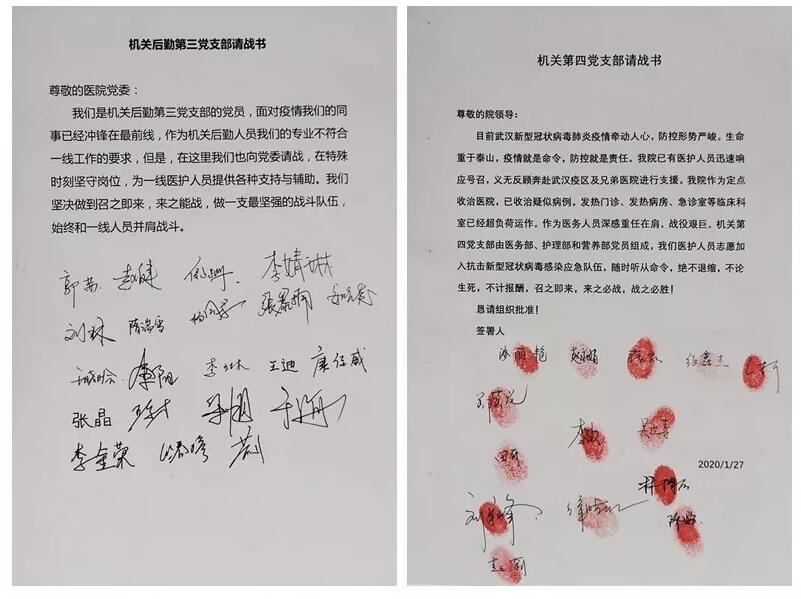 机关后勤第三党支部请战书
尊敬的医院党委：
我们是机关后勤第三党支部的党员，面对疫情我们的同
事已经冲锋在最前线，作为机关后勤人员我们的专业不符合
一线工作的要求，但是，在这里我们也向党委请战，在特殊
时刻坚守岗位，为一线医护人员提供各种支持与辅助。我们
坚决做到召之即来，来之能战，做一支最坚强的战斗队伍，
始终和一线人员并肩战斗。
李婧琳
刘林
王迪 康保威
张晶
李金荣
机关第四党支部请战书
尊敬的院领导：
目前武汉新型冠状病毒肺炎疫情牵动人心，防控形势严峻。生命
重于泰山，疫情就是命令，防控就是责任。我院已有医护人员迅速响
应号召，义无反顾奔赴武汉疫区及兄弟医院进行支援。我院作为定点
收治医院，已收治疑似病例。发热门诊、发热病房、急诊室等临床科
室已经超负荷运作。作为医务人员深感重任在肩，战役艰巨。机关第
四党支部由医务部、护理部和营养部党员组成，我们医护人员志愿加
入抗击新型冠状病毒感染应急队伍，随时听从命令，绝不退缩，不论
生死，不计报酬，召之即来，来之必战，战之必胜！
恳请组织批准！
签署人
2020/1/27